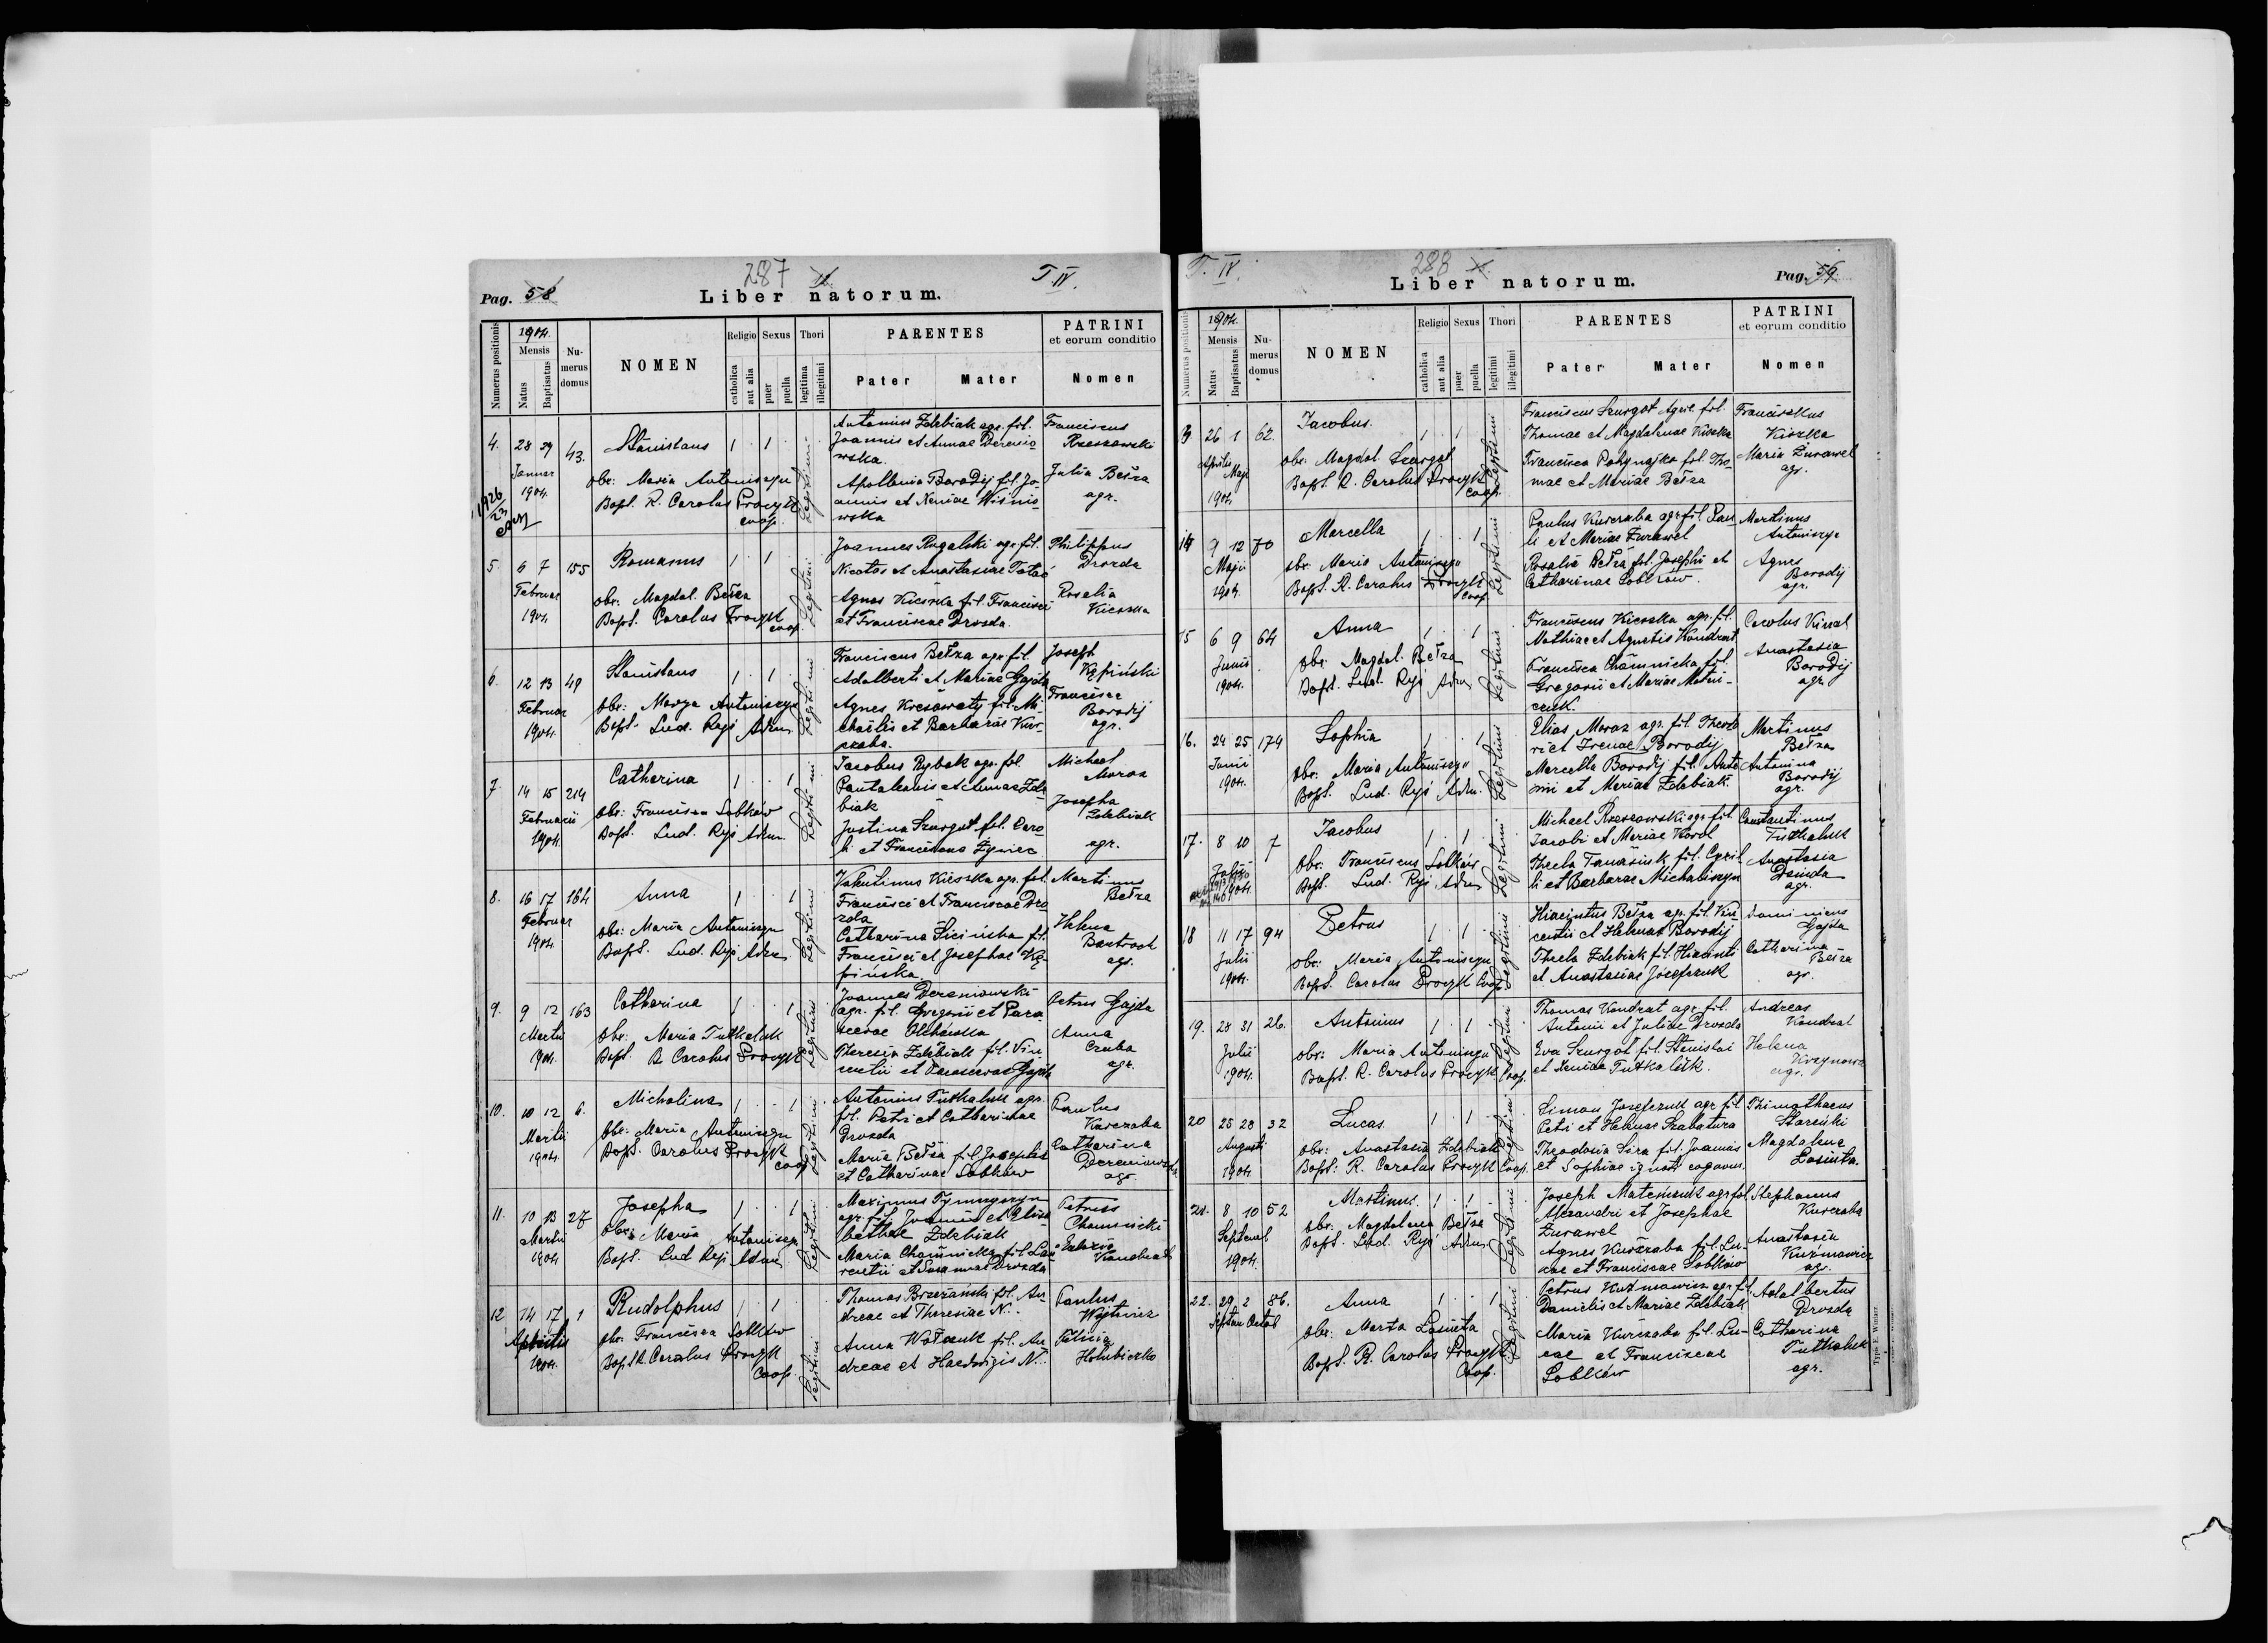 287
T. IV.
Pag. 58
Liber natorum.
Numerus positionis
1904.
Mensis
Natus
Baptisatus
Numerus domus
NOMEN
Religio
catholica
aut alia
Sexus
puer
puella
Thori
legitima
illegitimi
PARENTES
Pater Mater
PATRINI
et eorum conditio
Nomen
4. 28 29 43. Stanislaus 1 1
Januar
1904.
obs: Maria Antoniszyn
Bapt. R. Carolus Procyk
coop.
Legitimi
Antonius Zdebiak agr. fil.
Joannis et Annae Derenio-
wska.
Apollonia Borodij fil. Jo-
annis et Xeniae Wiśnio-
wska
Franciscus
Rzeszowski
Julia Bełza
agr.
1926
5. 6 7 155 Romanus 1 1
Februar
1904.
obs: Magdal. Bełza
Bapt. Carolus Procyk
coop.
Legitimi
Joannes Rogalski agr. fil.
Nicetas et Anastasiae
Agnes Kieszka fil. Francisci
et Franciscae Drozda.
Philippus
Drozda
Rosalia
Kieszka
6. 12 13 49 Stanislaus 1 1
Februar
1904.
obs: Marya Antoniszyn
Bapt. Lud. Ryś Adm.
Legitimi
Franciscus Bełza agr. fil.
Adalberti et Mariae Gajda
Agnes Kresowaty fil. Mi-
chaëlis et Barbarae Kur-
czaba.
Joseph
Kępiński
Francisca
Borodij
agr.
7. 14 15 214 Catharina 1 1
Februarii
1904.
obs: Francisca Sobków
Bapt. Lud. Ryś Adm.
Legitimi
Jacobus Rybak agr. fil.
Pantaleonis et Annae Zde-
biak
Justina Szurgot fil. Caro-
li et Franciscae Żyniec
Michael
Moroz
Josepha
Zdebiak
agr.
8. 16 17 164 Anna 1 1
Februar
1904.
obs: Maria Antoniszyn
Bapt. Lud. Ryś Adm.
Legitimi
Valentinus Kieszka agr. fil.
Francisci et Franciscae Dro-
zda
Catharina Sicińska fil.
Francisci et Josephae Kę-
pińska.
Martinus
Bełza
Helena
agr.
9. 9 12 163 Catharina 1 1
Martii
1904.
obs: Maria Tutkaluk
Bapt. R. Carolus Procyk
Legitimi
Joannes Dereniowski
agr. fil. Gregorii et Para-
scevae
Theresia Zdebiak fil. Vin-
centii et Parascevae Gajda
Petrus Gajda
Anna
Czuba
agr.
10. 10 12 6. Michalina 1 1
Martii
1904.
obs: Maria Antoniszyn
Bapt. Carolus Procyk
coop.
Legitimi
Antonius Tutkaluk agr.
fil. Petri et Catharinae
Drozda
Maria Bełza fil. Josephi
et Catharinae Sobków
Paulus
Kurczaba
Catharina
Dereniowska
agr.
11. 10 13 27 Josepha 1 1
Martii
1904
obs: Maria Antoniszyn
Bapt. Lud. Ryś Adm.
Legitimi
Maximus
agr. fil. Joannis et Elisa-
bethae Zdebiak
Maria Chamnicka fil. Lau-
rentii et Susannae Drozda
Petrus
Chamnicki
Eudoxia
Kondrat
12 14 17 1 Rudolphus 1 1
Aprilis
1904.
obs: Francisca Sobków
Bapt. R. Carolus Procyk
Coop.
Legitimi
Thomas Brzezański fil. An-
dreae et Theresiae N..
Anna fil. An-
dreae et Haedvigis N..
Paulus
Wojtowicz
Felicia
Hołubiczko
T. IV.
288
Liber natorum.
Pag. 59.
Numerus positionis
1904.
Mensis
Natus
Baptisatus
Numerus domus
NOMEN
Religio
catholica
aut alia
Sexus
puer
puella
Thori
legitimi
illegitimi
PARENTES
Pater Mater
PATRINI
et eorum conditio
Nomen
13 26 1 62. Jacobus 1 1
Aprilis Maji
1904
obs: Magdal. Szurgot
Bapt. R. Carolus Procyk
Coop.
Legitimi
Franciscus Szurgot Agric. fil.
Thomae et Magdalenae Kiszka
Francisca fil. Tho-
mae et Mariae Bełza
Franciszkus
Kiszka
Maria Żurawel
agr.
14 9 12 70 Marcella 1 1
Maji
1904.
obs: Maria Antoniszyn
Bapt. R. Carolus Procyk
Coop.
Legitimi
Paulus Kurczaba agr. fil. Pau-
li et Mariae Żurawel
Rosalia Bełza fil. Josephi et
Catharinae Sobków.
Martinus
Antoniszyn
Agnes
Borodij
agr.
15 6 9 64 Anna 1 1
Junii
1904.
obs: Magdal. Bełza
Bapt. Lud. Ryś Adm.
Legitimi
Franciscus Kieszka agr. fil.
Mathiae et Agnetis Kondrat
Francisca Chamnicka fil.
Gregorii et Mariae Matei-
czuk.
Carolus
Anastasia
Borodij
agr.
16. 24 25 174 Sophia 1 1
Junii
1904.
obs: Maria Antoniszyn
Bapt. Lud. Ryś Adm.
Legitimi
Elias Moroz agr. fil. Theodo-
ri et Irenae Borodij
Marcella Borodij fil. Anto-
nii et Mariae Zdebiak.
Martinus
Bełza
Antonina
Borodij
agr.
17. 8 10 7 Jacobus 1 1
Julii
1904.
obs: Franciscus Sobków
Bapt. Lud. Ryś Adm.
Legitimi
Michael Rzeszowski agr. fil.
Jacobi et Mariae Korol
Thecla Tanasiuk fil. Cyril-
li et Barbarae Michaliszyn
Constantinus
Tutkaluk
Anastasia
agr.
18 11 17 94 Petrus 1 1
Julii
1904.
obs: Maria Antoniszyn
Bapt. Carolus Procyk Coop.
Legitimi
Hiacintus Bełza agr. fil. Vin-
centii et Helenae Borodij
Thecla Zdebiak fil. Hiacinti
et Anastasiae Józefczuk
Dominicus
Gajda
Catharina
Bełza
agr.
19. 28 31 26. Antonius 1 1
Julii
1904.
obs: Maria Antoniszyn
Bapt. R. Carolus Procyk Coop.
Legitimi
Thomas Kondrat agr. fil.
Antonii et Juliae Drozda
Eva Szurgot fil. Stanislai
et Xeniae Tutkaluk.
Andreas
Kondrat
Helena
agr.
20 25 28 32 Lucas. 1 1
Augusti
1904
obs: Anastasia Zdebiak
Bapt: R. Carolus Procyk Coop.
Legitimi
Simon Josefczuk agr. fil.
Petri et Helenae Szabatura
Theodosia Sira fil. Joannis
et Sophiae ignoti cognom.
Thimothaeus
Starenki
Magdalena
Losiuta.
21. 8 10 52 Martinus 1 1
Septemb
1904.
obs: Magdalena Bełza
Bapt. Lud. Ryś Adm.
Legitimi
Joseph Mateiczuk agr. fil.
Alexandri et Josephae
Żurawel
Agnes Kurczaba fil. Lu-
cae et Franciscae Sobków
Stephanus
Kurczaba
Anastasia
Kuźmowicz
agr.
22. 29 2 86. Anna 1 1
Septem Octob
obs: Marta Losiuta
Bapt. R. Carolus Procyk
Coop.
Legitimi
Petrus Kuźmowicz agr. fil.
Danielis et Mariae Zdebiak
Maria Kurczaba fil. Lu-
cae et Franciscae
Sobków
Adalbertus
Drozda
Catharina
Tutkaluk
agr.
Typis E. Winiarz.